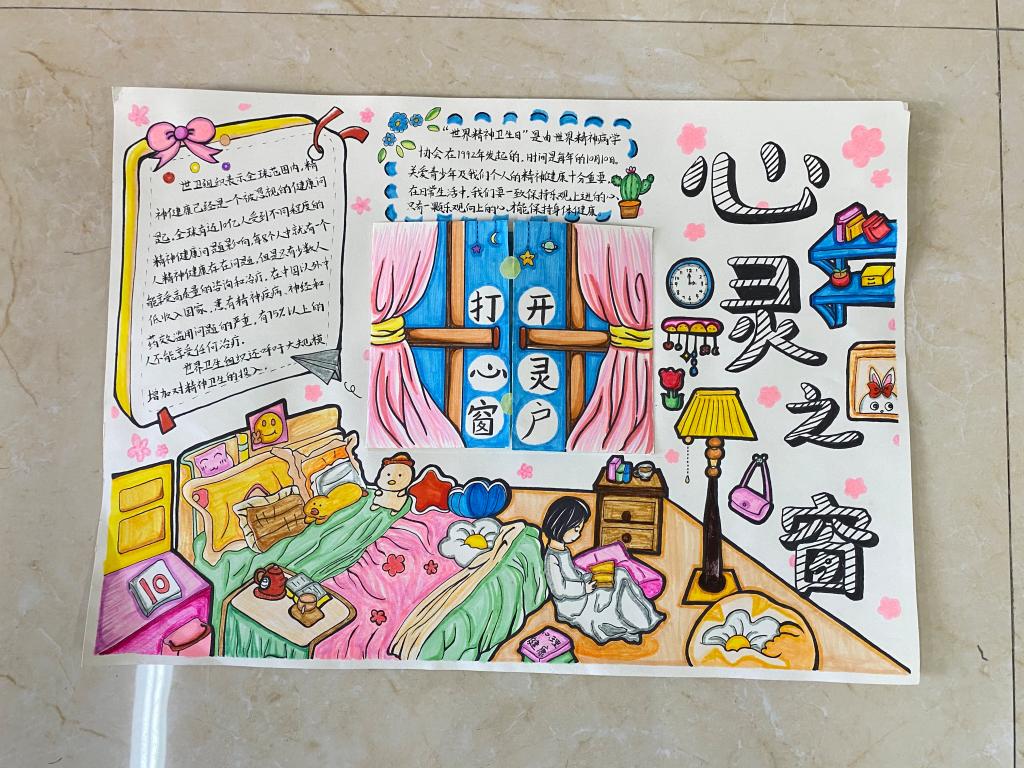 世卫组织表示全球范围内,精
神健康已经是一个被忽视的健康问
题,全球有近10亿人受到不同程度的
精神健康问题影响,每8个人中就有一个
人精神健康存在问题,但是只有少数人
能享受高质量的咨询和治疗,在中国以外中
低收入国家,患有精神疾病、神经和
药效滥用问题的严重,有75%以上的
人不能享受任何治疗.
世界卫生组织还呼吁大规模
增加对精神卫生的投入
“世界精神卫生日”是由世界精神病学
协会在1992年发起的,时间是每年的10月10日.
关爱青少年及我们个人的精神健康十分重要,
在日常生活中,我们要一致保持乐观上进的心,
只有一颗乐观向上的心,才能保持身体健康.
打开
心灵
窗户
心灵之窗
10
心理
健康